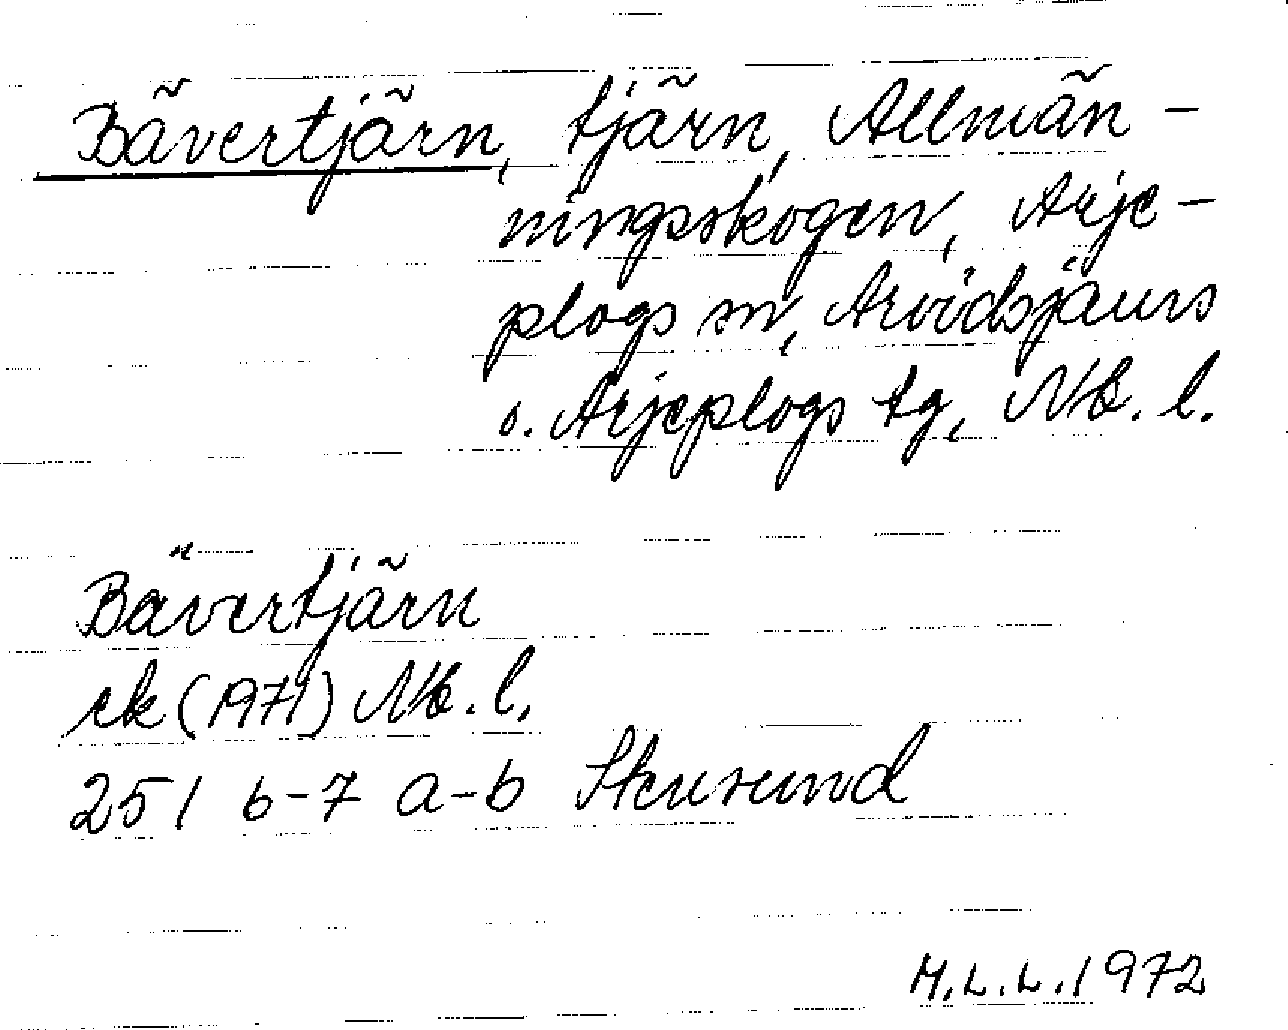 Bävertjärn, tjärn, Allmän-
ningsskogen, Arje-
plogs sn, Arvidsjaurs
o. Arjeplogs tg, Nb. l.
Bävertjärn
ek (1971) Nb. l.
25 I 6-7 a-b Stensund
M.L.L. 1972